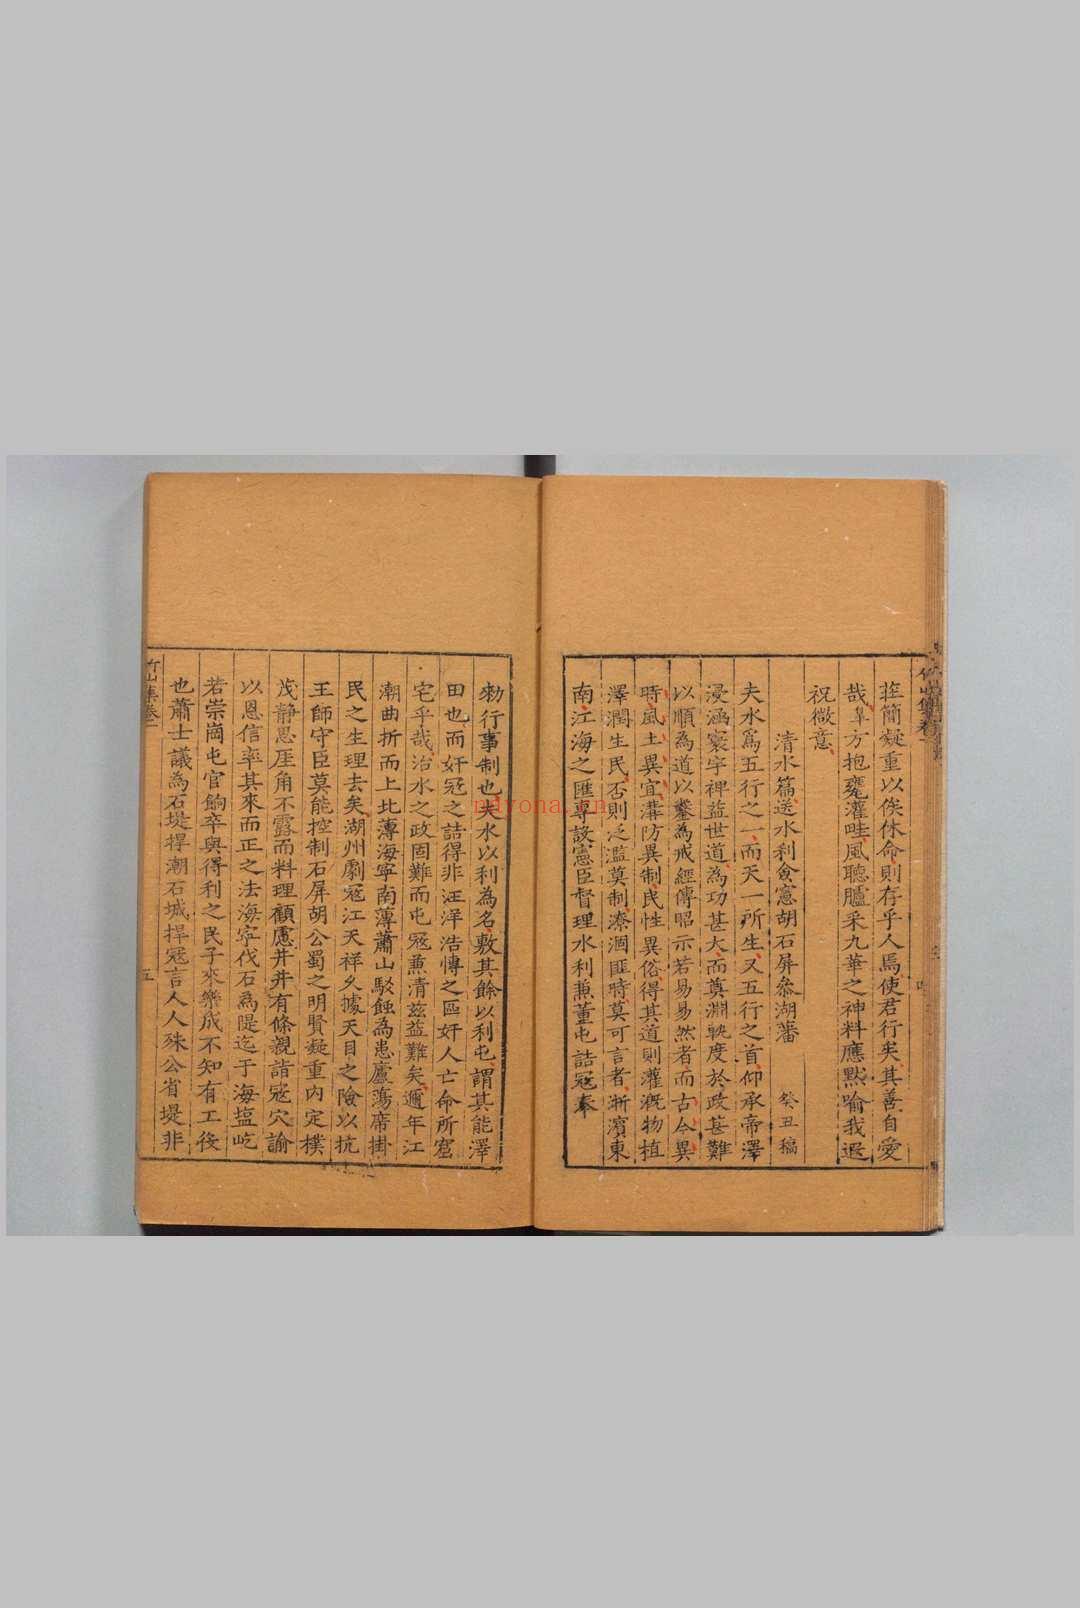 莊簡凝重以俟休命則存乎人焉使君行矣其善自愛
哉阜方抱甕灌畦風聽臚采九華之神料應默喻我遐
祝微意
清水篇送水利僉憲胡石屏叅湖藩 癸丑稿
夫水爲五行之一而天一所生又五行之首仰承帝澤
浸涵寰宇裨益世道為功甚大而奠淵軼度於政甚難
以順為道以鑿為戒經傳昭示若易易然者而古今異
時風土異宜溝防異制民性異俗得其道則灌溉物植
澤潤生民否則泛濫莫制潦涸匪時莫可言者浙濱東
南江海之匯專設憲臣督理水利兼董屯詰寇奉
勑行事制也夫水以利為名敷其餘以利屯謂其能澤
田也而奸寇之詰得非汪洋浩慱之區奸人亡命所窟
宅乎哉治水之政固難而屯寇兼清茲益難矣邇年江
潮曲折而上北薄海寧南薄蕭山駁蝕為患廬蕩席掛
民之生理去矣湖州劇寇江天祥久據天目之險以抗
王師守臣莫能控制石屏胡公蜀之明賢凝重内定樸
茂靜愚厓角不露而料理顧慮井井有條親詣寇穴諭
以恩信率其來而正之法海寧伐石為隄迄于海塩屹
若崇崗屯官餉卒與得利之民子來樂成不知有工後
也蕭士議為石堤捍潮石城捍寇言人人殊公省堤非
竹山集卷一
五